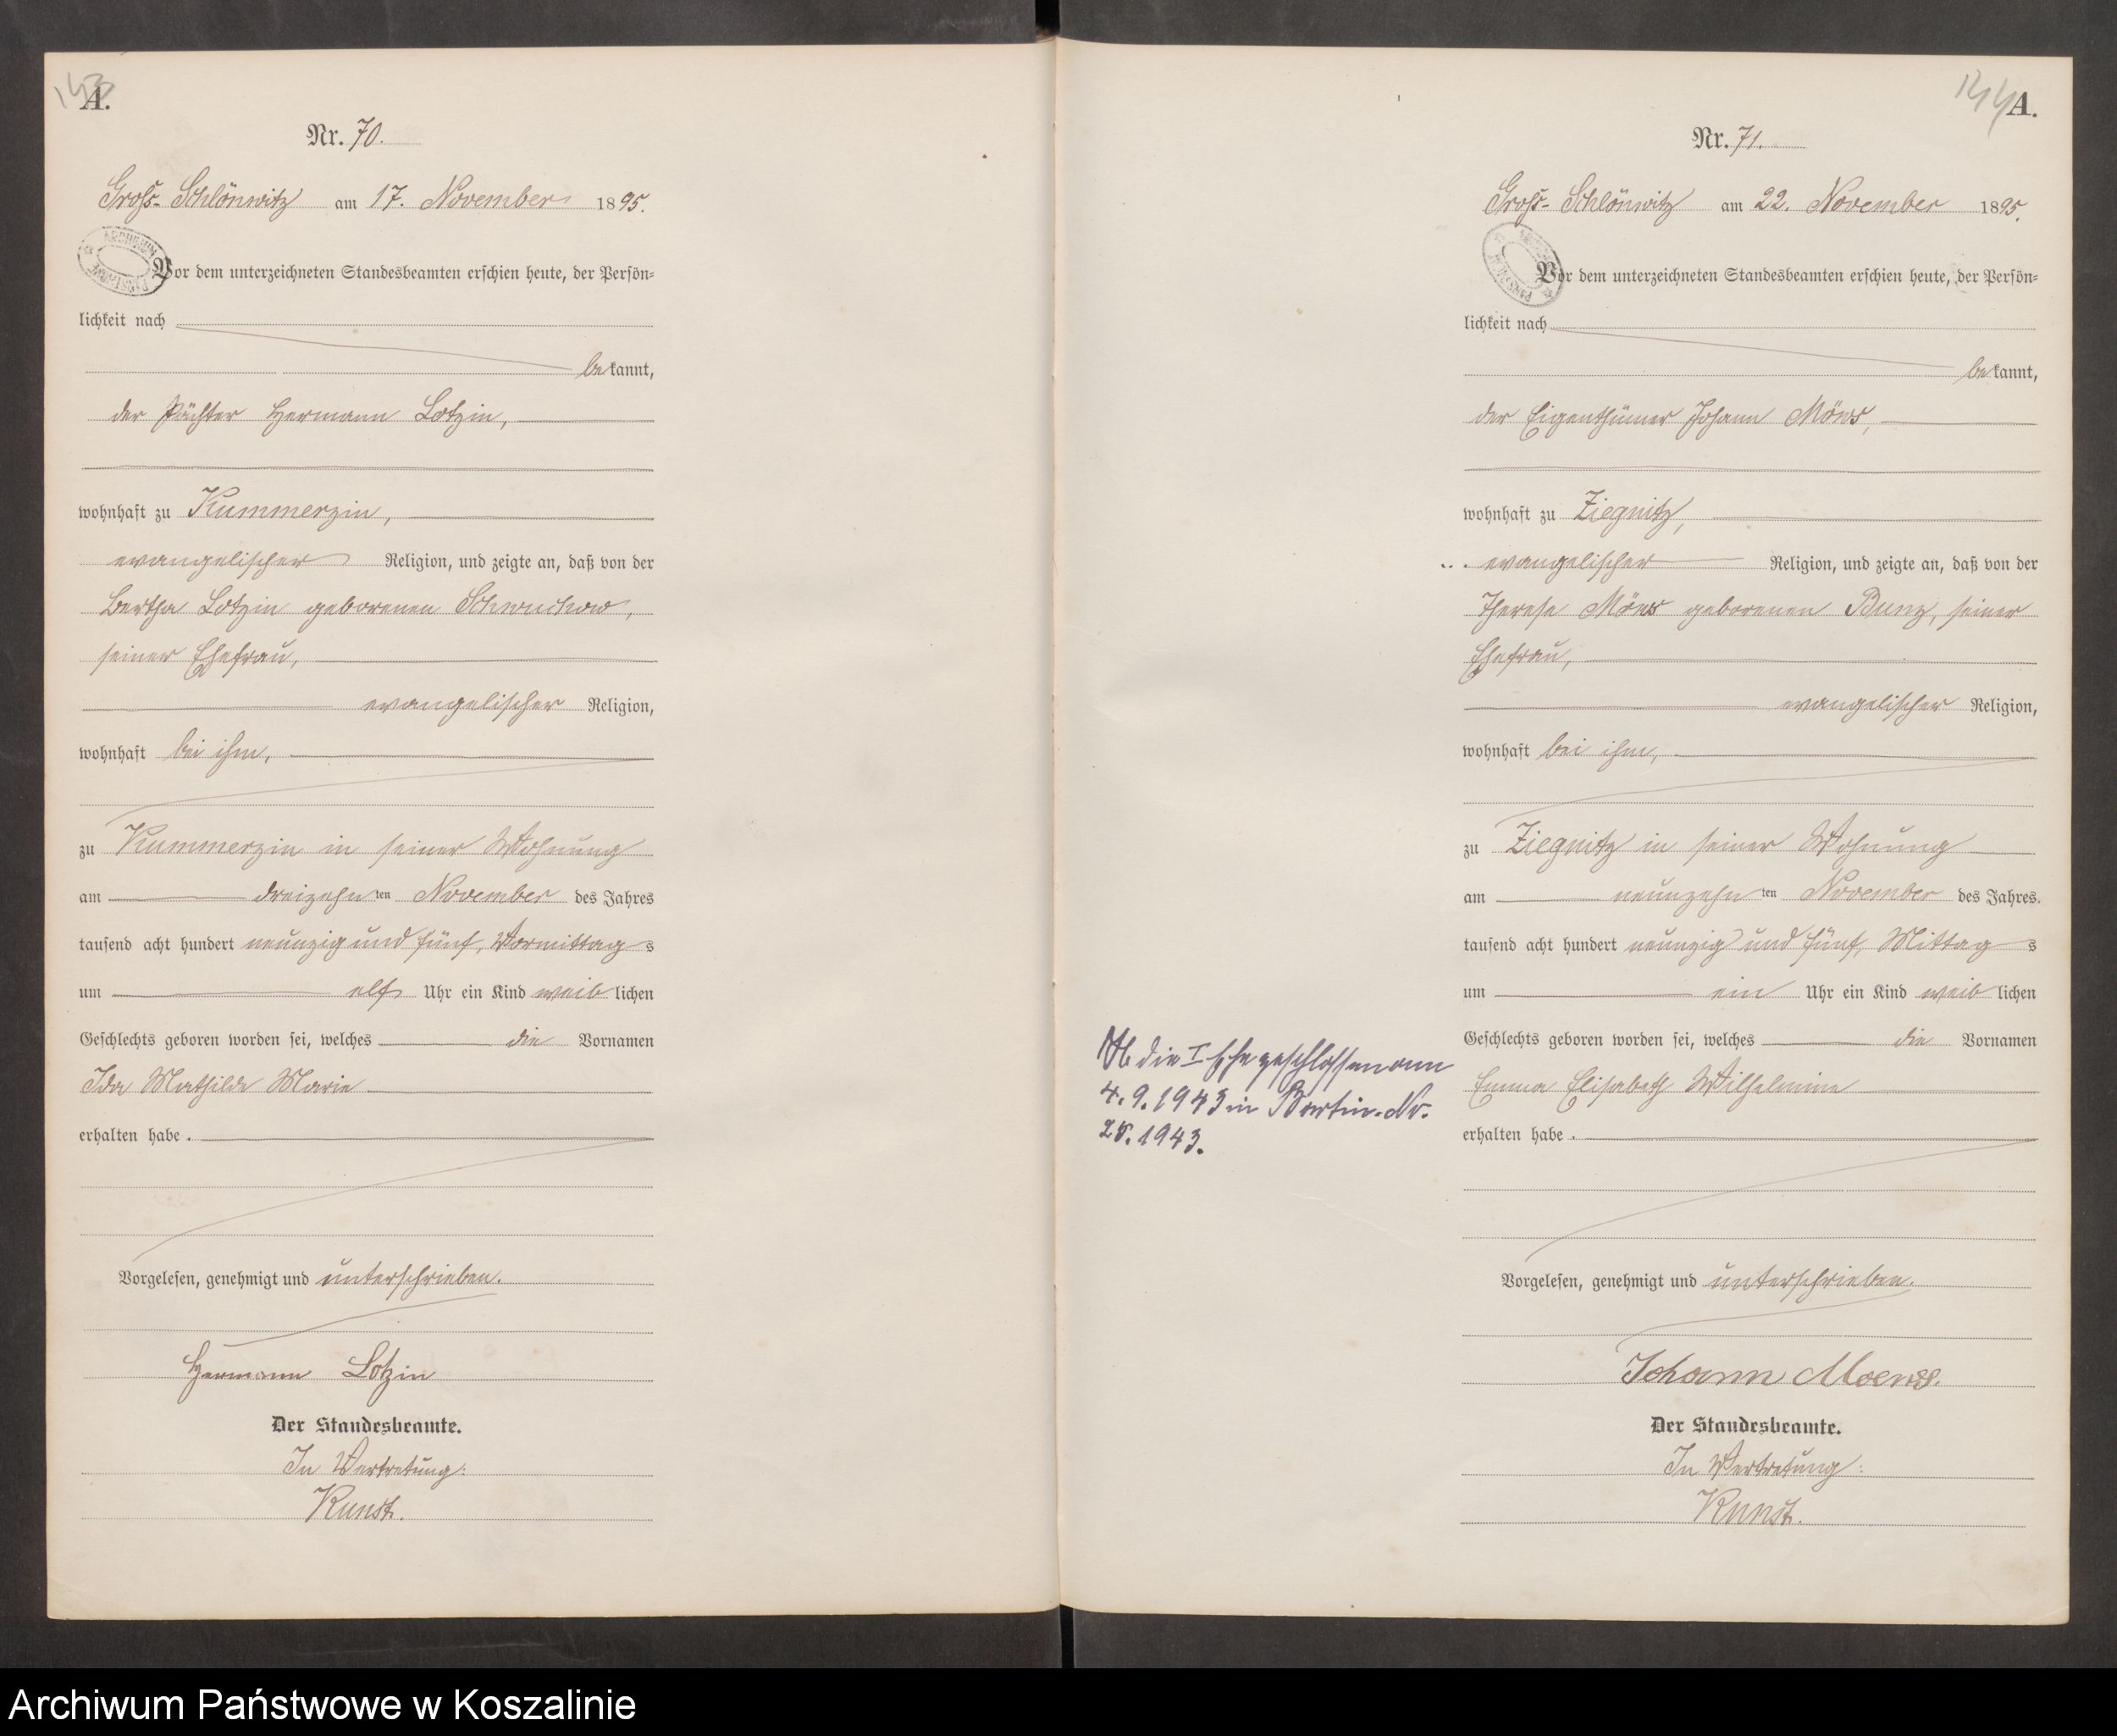 143
A.
Nr. 70.
Groß-Schlönwitz am 17. November 1895.
Vor dem unterzeichneten Standesbeamten erschien heute, der Persön=
lichkeit nach
bekannt,
der Pächter Hermann Lotzin,
wohnhaft zu Kummerzin,
evangelischer Religion, und zeigte an, daß von der
Bertha Lotzin geborenen Schwuchow,
seiner Ehefrau,
evangelischer Religion,
wohnhaft bei ihm,
zu Kummerzin in seiner Wohnung
am dreizehnten November des Jahres
tausend acht hundert neunzig und fünf, Vormittags
um elf Uhr ein Kind weiblichen
Geschlechts geboren worden sei, welches die Vornamen
Ida Mathilde Marie
erhalten habe.
Vorgelesen, genehmigt und unterschrieben.
Hermann Lotzin
Der Standesbeamte.
In Vertretung:
Kunst.
144
A.
Nr. 71.
Groß-Schlönwitz am 22. November 1895.
Vor dem unterzeichneten Standesbeamten erschien heute, der Persön=
lichkeit nach
bekannt,
der Eigenthümer Johann Möws,
wohnhaft zu Ziegnitz,
evangelischer Religion, und zeigte an, daß von der
Therese Möws geborenen Bunz, seiner
Ehefrau,
evangelischer Religion,
wohnhaft bei ihm,
zu Ziegnitz in seiner Wohnung
am neunzehnten November des Jahres.
tausend acht hundert neunzig und fünf, Mittags
um ein Uhr ein Kind weiblichen
Geschlechts geboren worden sei, welches die Vornamen
Emma Elisabeth Wilhelmine
erhalten habe.
die I Ehe geschlossen am
4.9.1943 in Nr.
1943.
Vorgelesen, genehmigt und unterschrieben.
Johann Moews.
Der Standesbeamte.
In Vertretung:
Kunst.
Archiwum Państwowe w Koszalinie